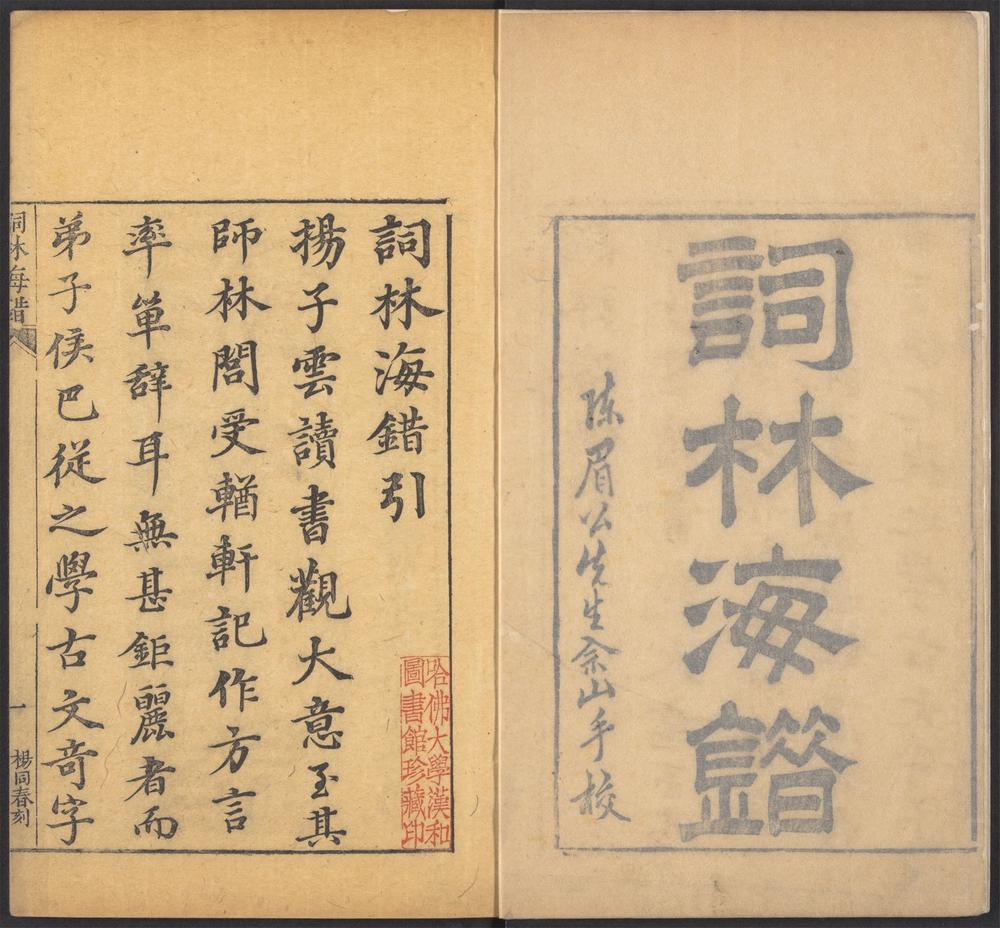 詞林海錯
陳眉公先生佘山手校
詞林海錯引
揚子雲讀書觀大意至其
師林閭受輶軒記作方言
率單辭耳無甚鉅麗者而
弟子侯巴從之學古文奇字
哈佛大學漢和
圖書館珍藏印
詞林海錯
一
楊同春刻